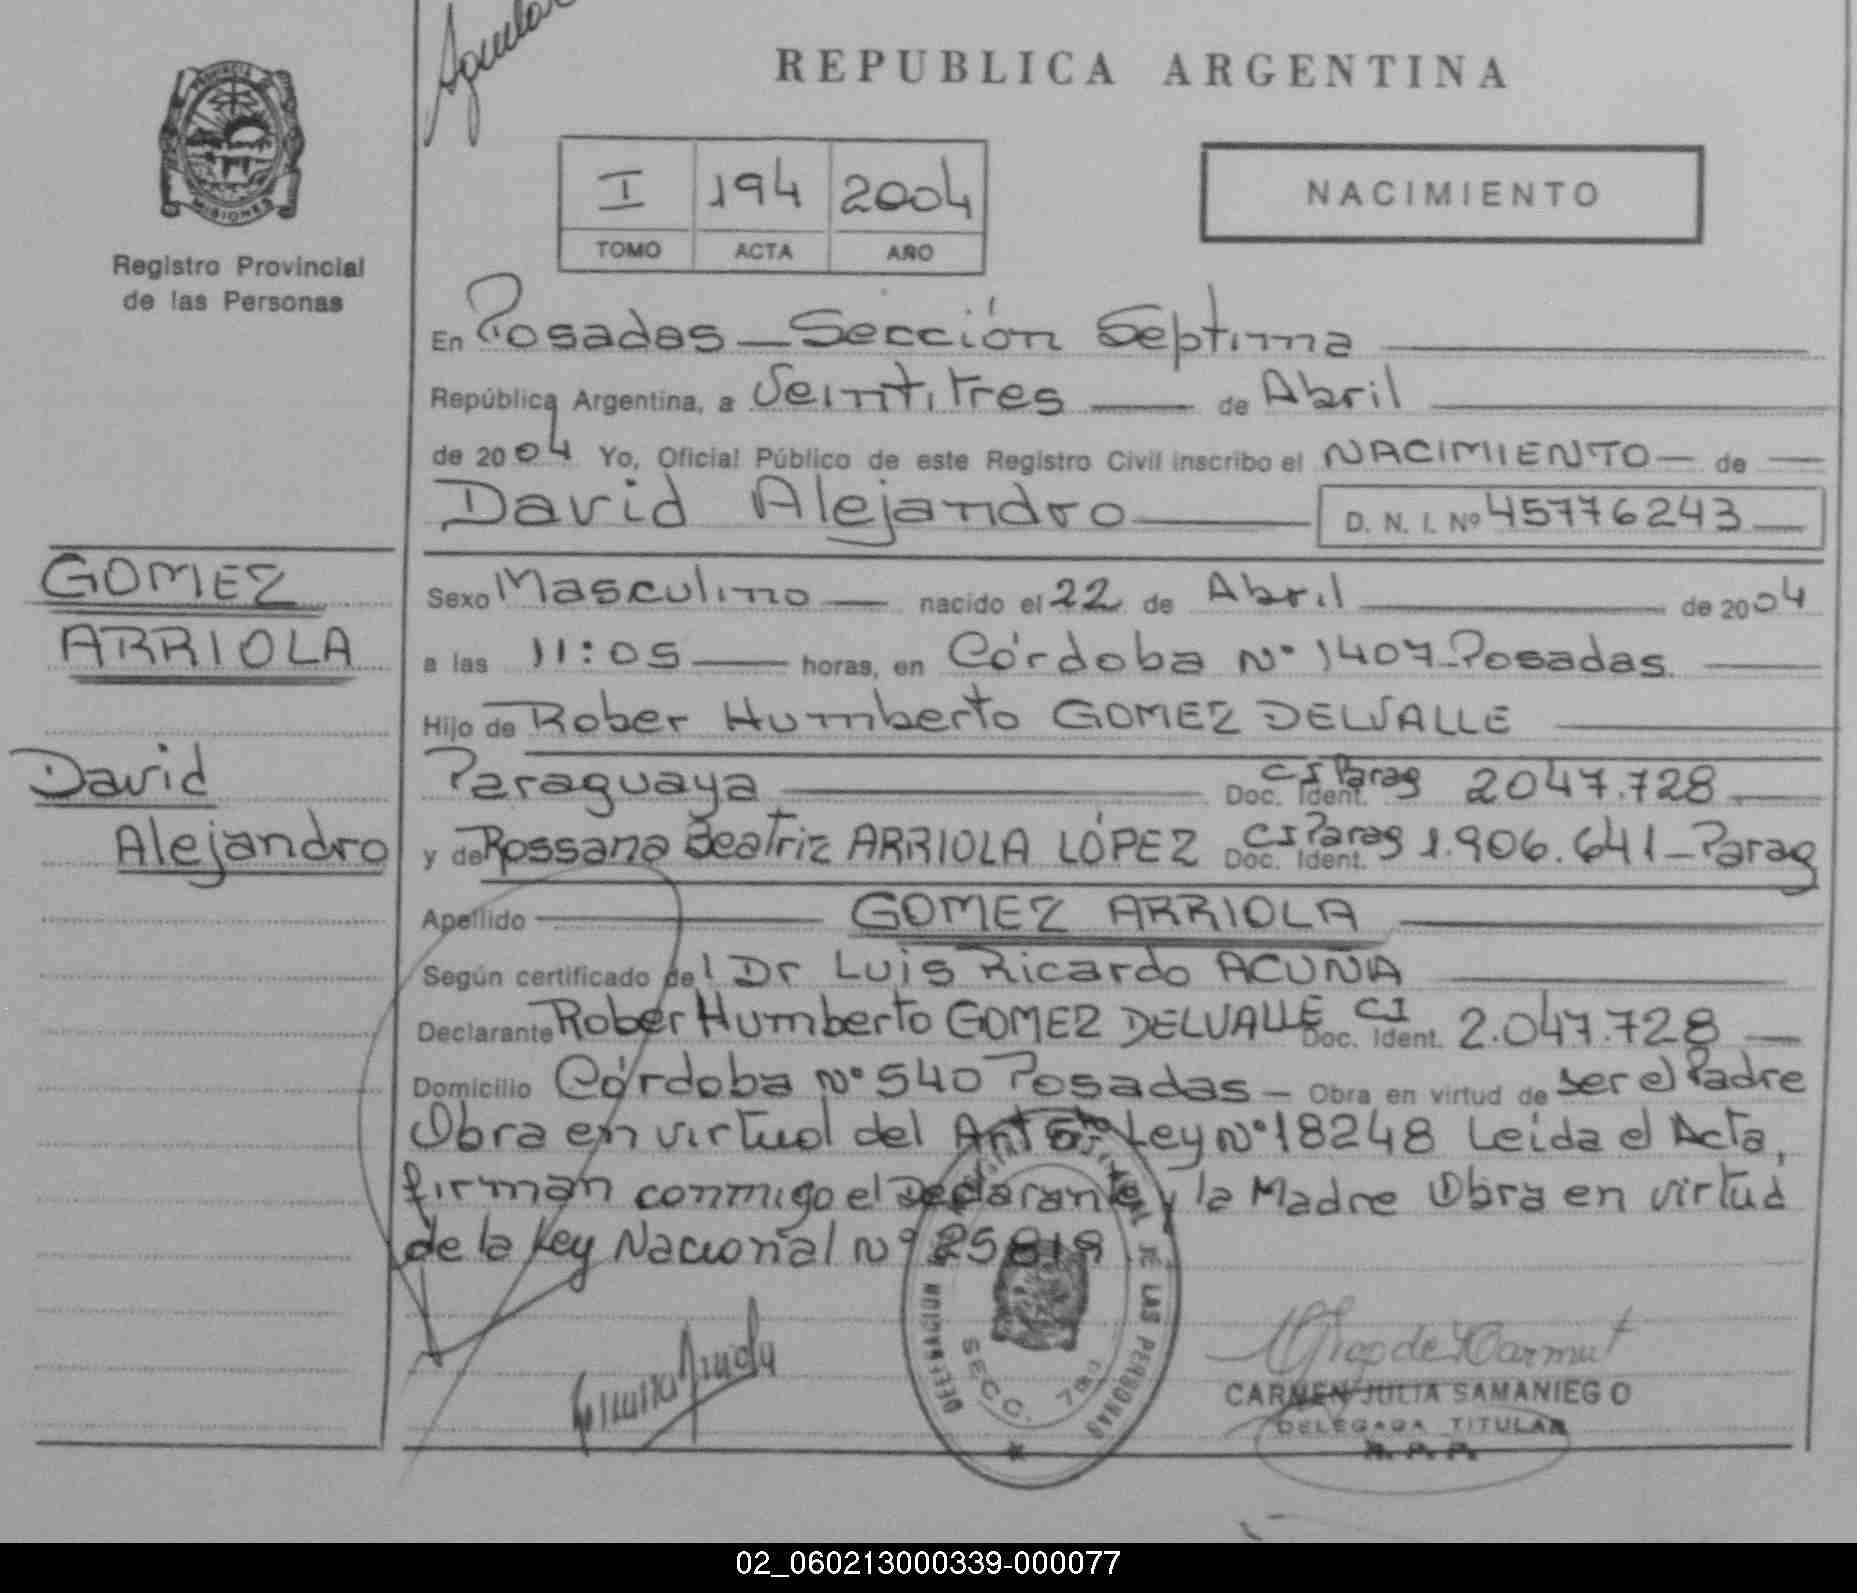 Aguilar
REPUBLICA ARGENTINA
PROVINCIA
MISIONES
Registro Provincial
de las Personas
I 194 2004
TOMO ACTA AÑO
NACIMIENTO
En Posadas — Sección Septima
República Argentina, a Veintitres — de Abril
de 2004 Yo, Oficial Público de este Registro Civil inscribo el NACIMIENTO — de —
David Alejandro — D. N. I. Nº 45776243 —
GOMEZ
ARRIOLA
David
Alejandro
Sexo Masculino — nacido el 22 de Abril — de 2004
a las 11:05 — horas, en Córdoba Nº 1407-Posadas. —
Hijo de Rober Humberto GOMEZ DELVALLE —
Paraguaya — Doc. Ident. CI Parag 2047.728 —
y de Rossana Beatriz ARRIOLA LÓPEZ Doc. Ident. CI Parag 1.906.641 — Parag
Apellido — GOMEZ ARRIOLA —
Según certificado del Dr Luis Ricardo ACUÑA —
Declarante Rober Humberto GOMEZ DELVALLE Doc. Ident. CI 2.047.728 —
Domicilio Córdoba Nº 540 Posadas — Obra en virtud de ser el Padre
Obra en virtud del Art 5to Ley Nº 18248 Leida el Acta,
firman conmigo el Declarante y la Madre Obra en virtud
de la Ley Nacional Nº 25819
DE LAS PERSONAS
DELEGACION
SECC. 7ma
CARMEN JULIA SAMANIEGO
DELEGADA TITULAR
R. P. P.
02_060213000339-000077